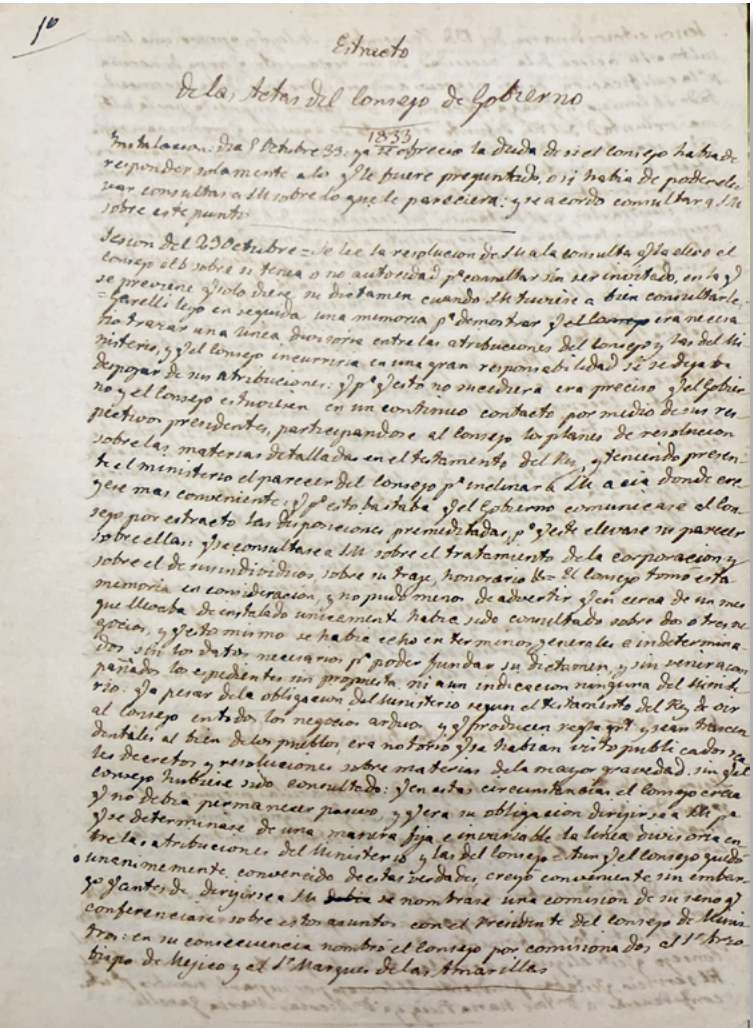 1º
Estracto
de las Actas del Consejo de Gobierno
1833
Instalacion: dia 5 Octubre 33: ya se ofrecio la duda de si el Consejo habia de
responder solamente a lo q.e le fuere preguntado, o si habia de poder ele
var consultas a SM sobre lo que le pareciera: y se acordo consultar a SM
sobre este punto
Sesion del 23 Octubre = Se lee la resolucion de SM a la consulta q.e la elevo el
Consejo el 6 sobre si tenia o no autoridad p.a consultar sin ser invitado, en la q.e
se previene q.e solo diese su dictamen cuando SM tuviese a bien consultarle,
= Garelli leyo en seguida una memoria p.a demostrar q.e era necesa
rio trazar una linea divisoria entre las atribuciones del Consejo y las del Mi
nisterio, y q.e el Consejo incurriria en una gran responsabilidad si se dejaba
despojar de sus atribuciones: y p.a q.e esto no sucediera era preciso q.e el Gobier
no y el Consejo estuviesen en un continuo contacto por medio de sus res
pectivos presidentes, participandose al Consejo los planes de resolucion
sobre las materias detalladas en el testamento del Rey, y teniendo presen
te el ministerio el parecer del Consejo p.a inclinar a SM acia donde cre
yese mas conveniente: y p.a esto bastaba q.e el Gobierno comunicase al Con
sejo por estracto las disposiciones premeditadas, p.a q.e este elevase su parecer
sobre ellas: q.e se consultase a SM sobre el tratamiento de la corporacion y
sobre el de sus individuos, sobre su traje, honorario &.a = El Consejo tomo esta
memoria en consideracion, y no pudo menos de advertir q.e en cerca de un mes
que llevaba de instalado unicamente habia sido consultado sobre dos o tres ne
gocios, y q.e esto mismo se habia echo en terminos generales e indetermina
dos sin los datos necesarios p.a poder fundar su dictamen, y sin venir acom
pañados los espedientes sin propuesta ni aun indicacion ninguna del Ministe
rio: q.e a pesar de la obligacion del Ministerio segun el testamento del Rey de oir
al Consejo en todos los negocios arduos, y q.e producen regla gral y sean trascen
dentales al bien de los pueblos, era notorio q.e se habian visto publicados rea
les decretos y resoluciones sobre materias de la mayor gravedad, sin q.e el
Consejo hubiese sido consultado: q.e en estas circunstancias el Consejo creia
q.e no debia permanecer pasivo, y q.e era su obligacion dirijirse a SM p.a
q.e se determinase de una manera fija e invariable la linea divisoria en
tre las atribuciones del Ministerio y las del Consejo = Aun q.e el Consejo quedó
unanimemente convencido de estas verdades creyó conveniente sin embar
go q.e antes de dirijirse a SM se nombrase una comision de su seno q.e
conferenciase sobre estos asuntos con el Presidente del Consejo de Minis
tros: en su consecuencia nombró el Consejo por comisionados al S.r Arzo
bispo de Mejico y el S.r Marques de las Amarillas